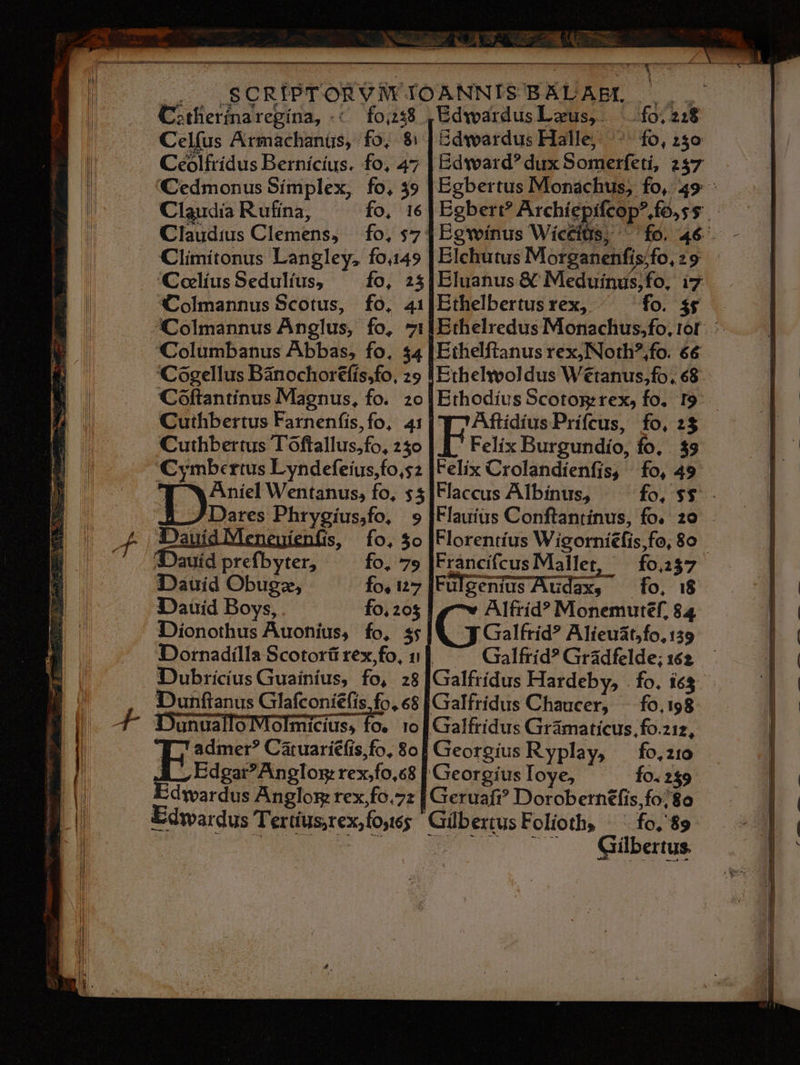 SCRIPTORVM IOANNIS BALAEI,
Catherina regina, fo,238
Celſus Armachanus, fo, 81
Ceolfridus Bernicius. fo, 47
Cedmonus Simplex, fo, 39
Claudia Rufina, fo, 16
Claudius Clemens, fo, 57
Climitonus Langley, fo,149
Cœlius Sedulius, fo, 25
Colmannus Scotus, fo, 41
Colmannus Anglus, fo, 71
Columbanus Abbas, fo, 34
Cōgellus Bānochorēſis,fo, 29
Cōſtantinus Magnus, fo. 20
Cuthbertus Farnenſis,fo, 41
Cuthbertus Tōſtallus,fo, 230
Cymbertus Lyndeſeius,fo,52
Daniel Wentanus, fo, 53
Dares Phrygius,fo, 9
Dauid Meneuienſis, fo, 30
Dauid preſbyter, fo, 79
Dauid Obugæ, fo, 127
Dauid Boys, fo, 205
Dionothus Auonius, fo, 35
Dornadilla Scotorū rex,fo, 11
Dubricius Guainius, fo, 28
Dunſtanus Glaſconiēſis,fo, 68
Dunuallo Molmicius, fo, 10
Eadmer⁹ Cātuariēſis,fo, 80
Edgar⁹ Angloꝝ rex,fo,68
Edwardus Angloꝝ rex,fo.72
Edwardus Tertius,rex,fo,165
Edwardus Læus, fo, 228
Edwardus Halle, fo, 230
Edward⁹ dux Somerſeti, 237
Egbertus Monachus, fo, 49
Egbert⁹ Archiepiſcop⁹,fo,55
Egwinus Wiccius, fo. 46
Elchutus Morganenſis,fo,29
Eluanus & Meduinus,fo, 17
Ethelbertus rex, fo. 35
Ethelredus Monachus,fo, 101
Ethelſtanus rex,Noth⁹,fo. 66
Ethelwoldus Wētanus,fo, 68
Ethodius Scotoꝝ rex, fo, 19
FAſtidius Priſcus, fo, 23
Felix Burgundio, fo, 39
Felix Crolandienſis, fo, 49
Flaccus Albinus, fo, 55
Flauius Conſtantinus, fo, 20
Florentius Wigorniēſis,fo, 80
Franciſcus Mallet, fo,237
Fulgenius Audax, fo, 18
GAlfrid⁹ Monemutēſ, 84
Galfrid⁹ Alieuāt,fo,139
Galfrid⁹ Grādfelde; 162
Galfridus Hardeby, fo, 163
Galfridus Chaucer, fo,198
Galfridus Grāmaticus,fo.212,
Georgius Ryplay, fo,210
Georgius Ioye, fo. 239
Geruaſi⁹ Dorobernēſis,fo,80
Gilbertus Folioth, fo, 89
Gilbertus